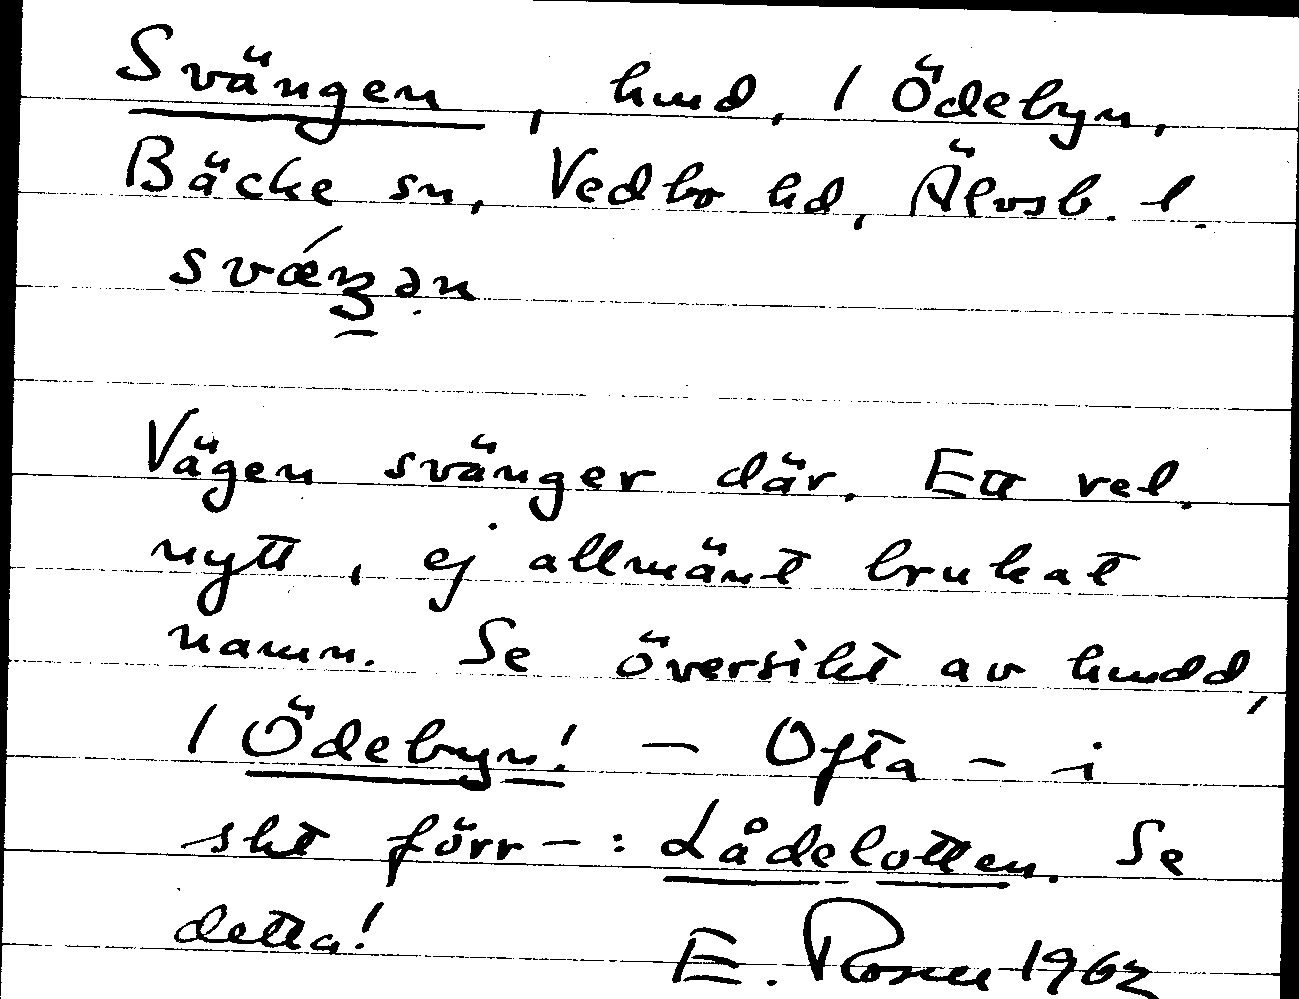 Svängen, hmd, 1 Ödebyn,
Bäcke sn, Vedbo hd, Älvsb. l.
Vägen svänger där. Ett rel.
nytt, ej allmänt brukat
namn. Se översikt av hmdd,
1 Ödebyn! – Ofta – i
sht förr – : Lådelotten. Se
detta! E. Rosell 1962